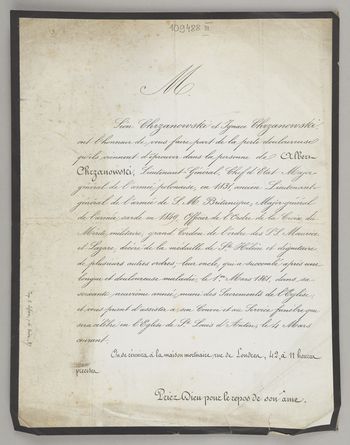 109488 III
M.
Léon Chrzanowski et Ignace Chrzanowski
ont l'honneur de vous faire part de la perte douloureuse
qu'ils viennent d'éprouver dans la personne de Albert
Chrzanowski, Lieutenant-Général, Chef d'Etat Major
général de l'armée polonaise, en 1831, ancien Lieutenant-
général de l'armée de S. M. Britannique, Major général
de l'armée sarde en 1849, Officier de l'Ordre de la Croix du
Mérite militaire, grand Cordon de l'ordre des S.ts Maurice
et Lazare, décoré de la médaille de S.te Hélène et dignitaire
de plusieurs autres ordres, leur oncle, qui a succombé après une
longue et douloureuse maladie, le 1.er Mars 1861, dans sa
soixante neuvième année, muni des Sacrements de l'Eglise,
et vous prient d'assister à son Convoi et au Service funèbre qui
sera célébré en l'Eglise de S.t Louis d'Antin, le 4 Mars
courant.
On se réunira à la maison mortuaire rue de Londres, 42, à 11 heures
précises.
Priez Dieu pour le repos de son âme.